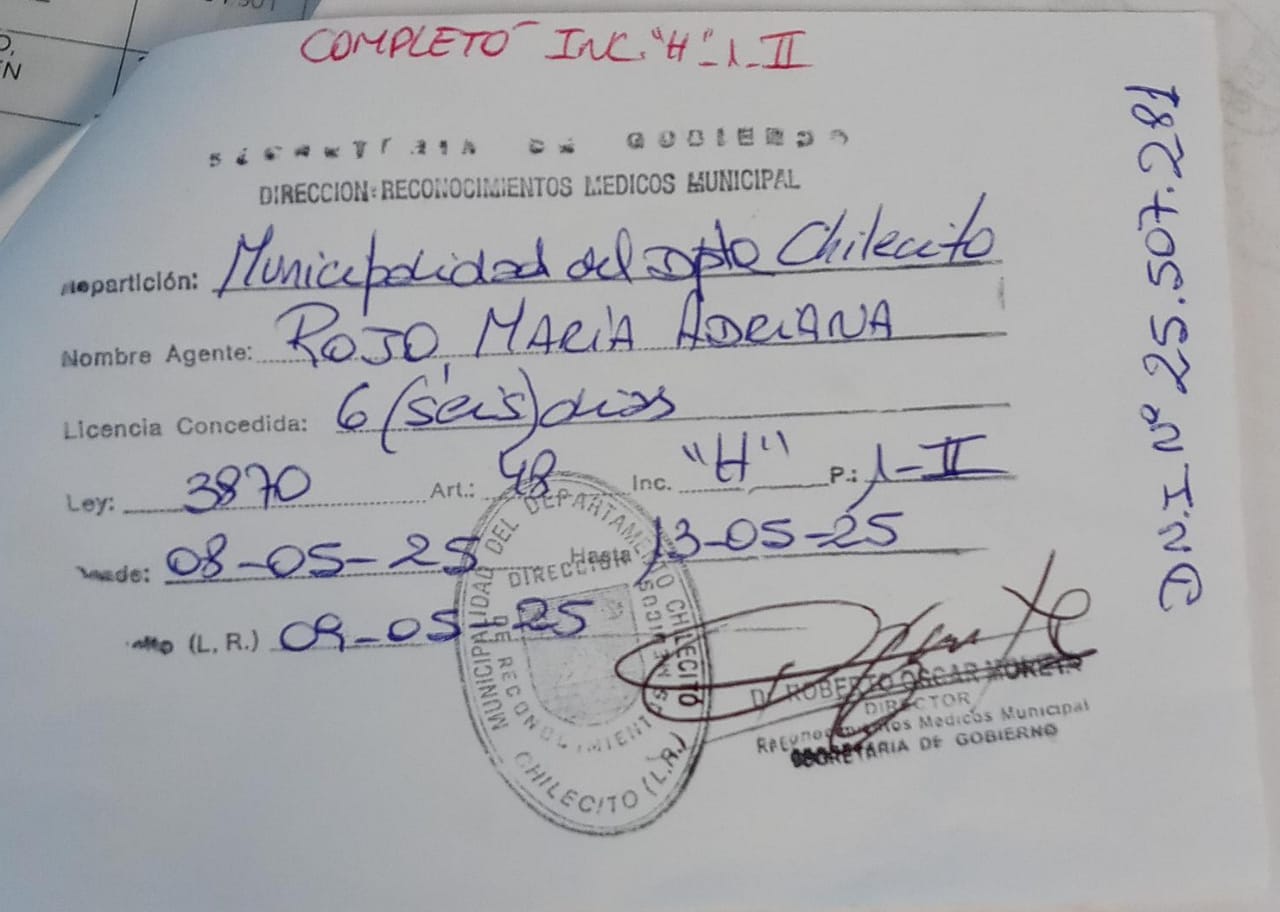 COMPLETO INC. "H"-1-II
SECRETARIA DE GOBIERNO
DIRECCION: RECONOCIMIENTOS MEDICOS MUNICIPAL
Repartición: Municipalidad del Dpto Chilecito
Nombre Agente: ROJO MARÍA ADRIANA
Licencia Concedida: 6 (séis) dias
Ley: 3870 Art.: 48 Inc. "H" P.: 1-II
Desde: 08-05-25 Hasta 13-05-25
(L. R.) 09-05-25
MUNICIPALIDAD DEL DEPARTAMENTO CHILECITO
DIRECCION DE RECONOCIMIENTOS MEDICOS
CHILECITO (L.R.)
Dr. ROBERTO OSCAR
DIRECTOR
Reconocimientos Medicos Municipal
SECRETARIA DE GOBIERNO
D.N.I Nº 25.507.281